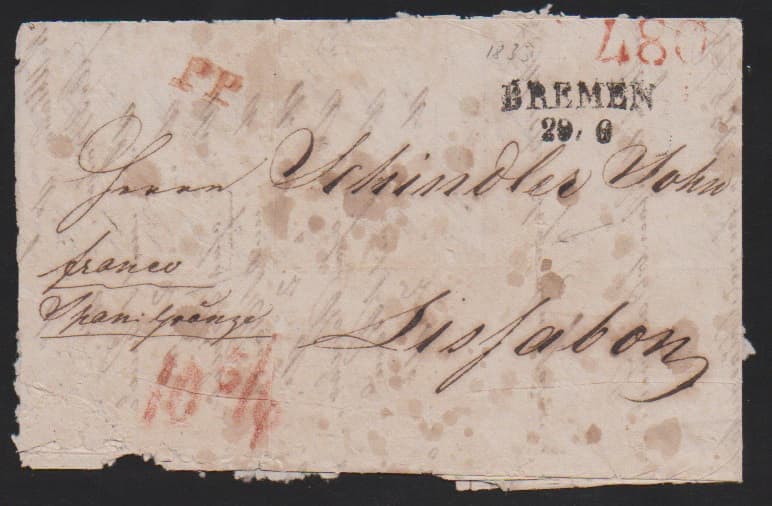 480
1835
PP
BREMEN
29/6
Herrn Schindler Sohn
franco
Span: Gränze
Lissabon